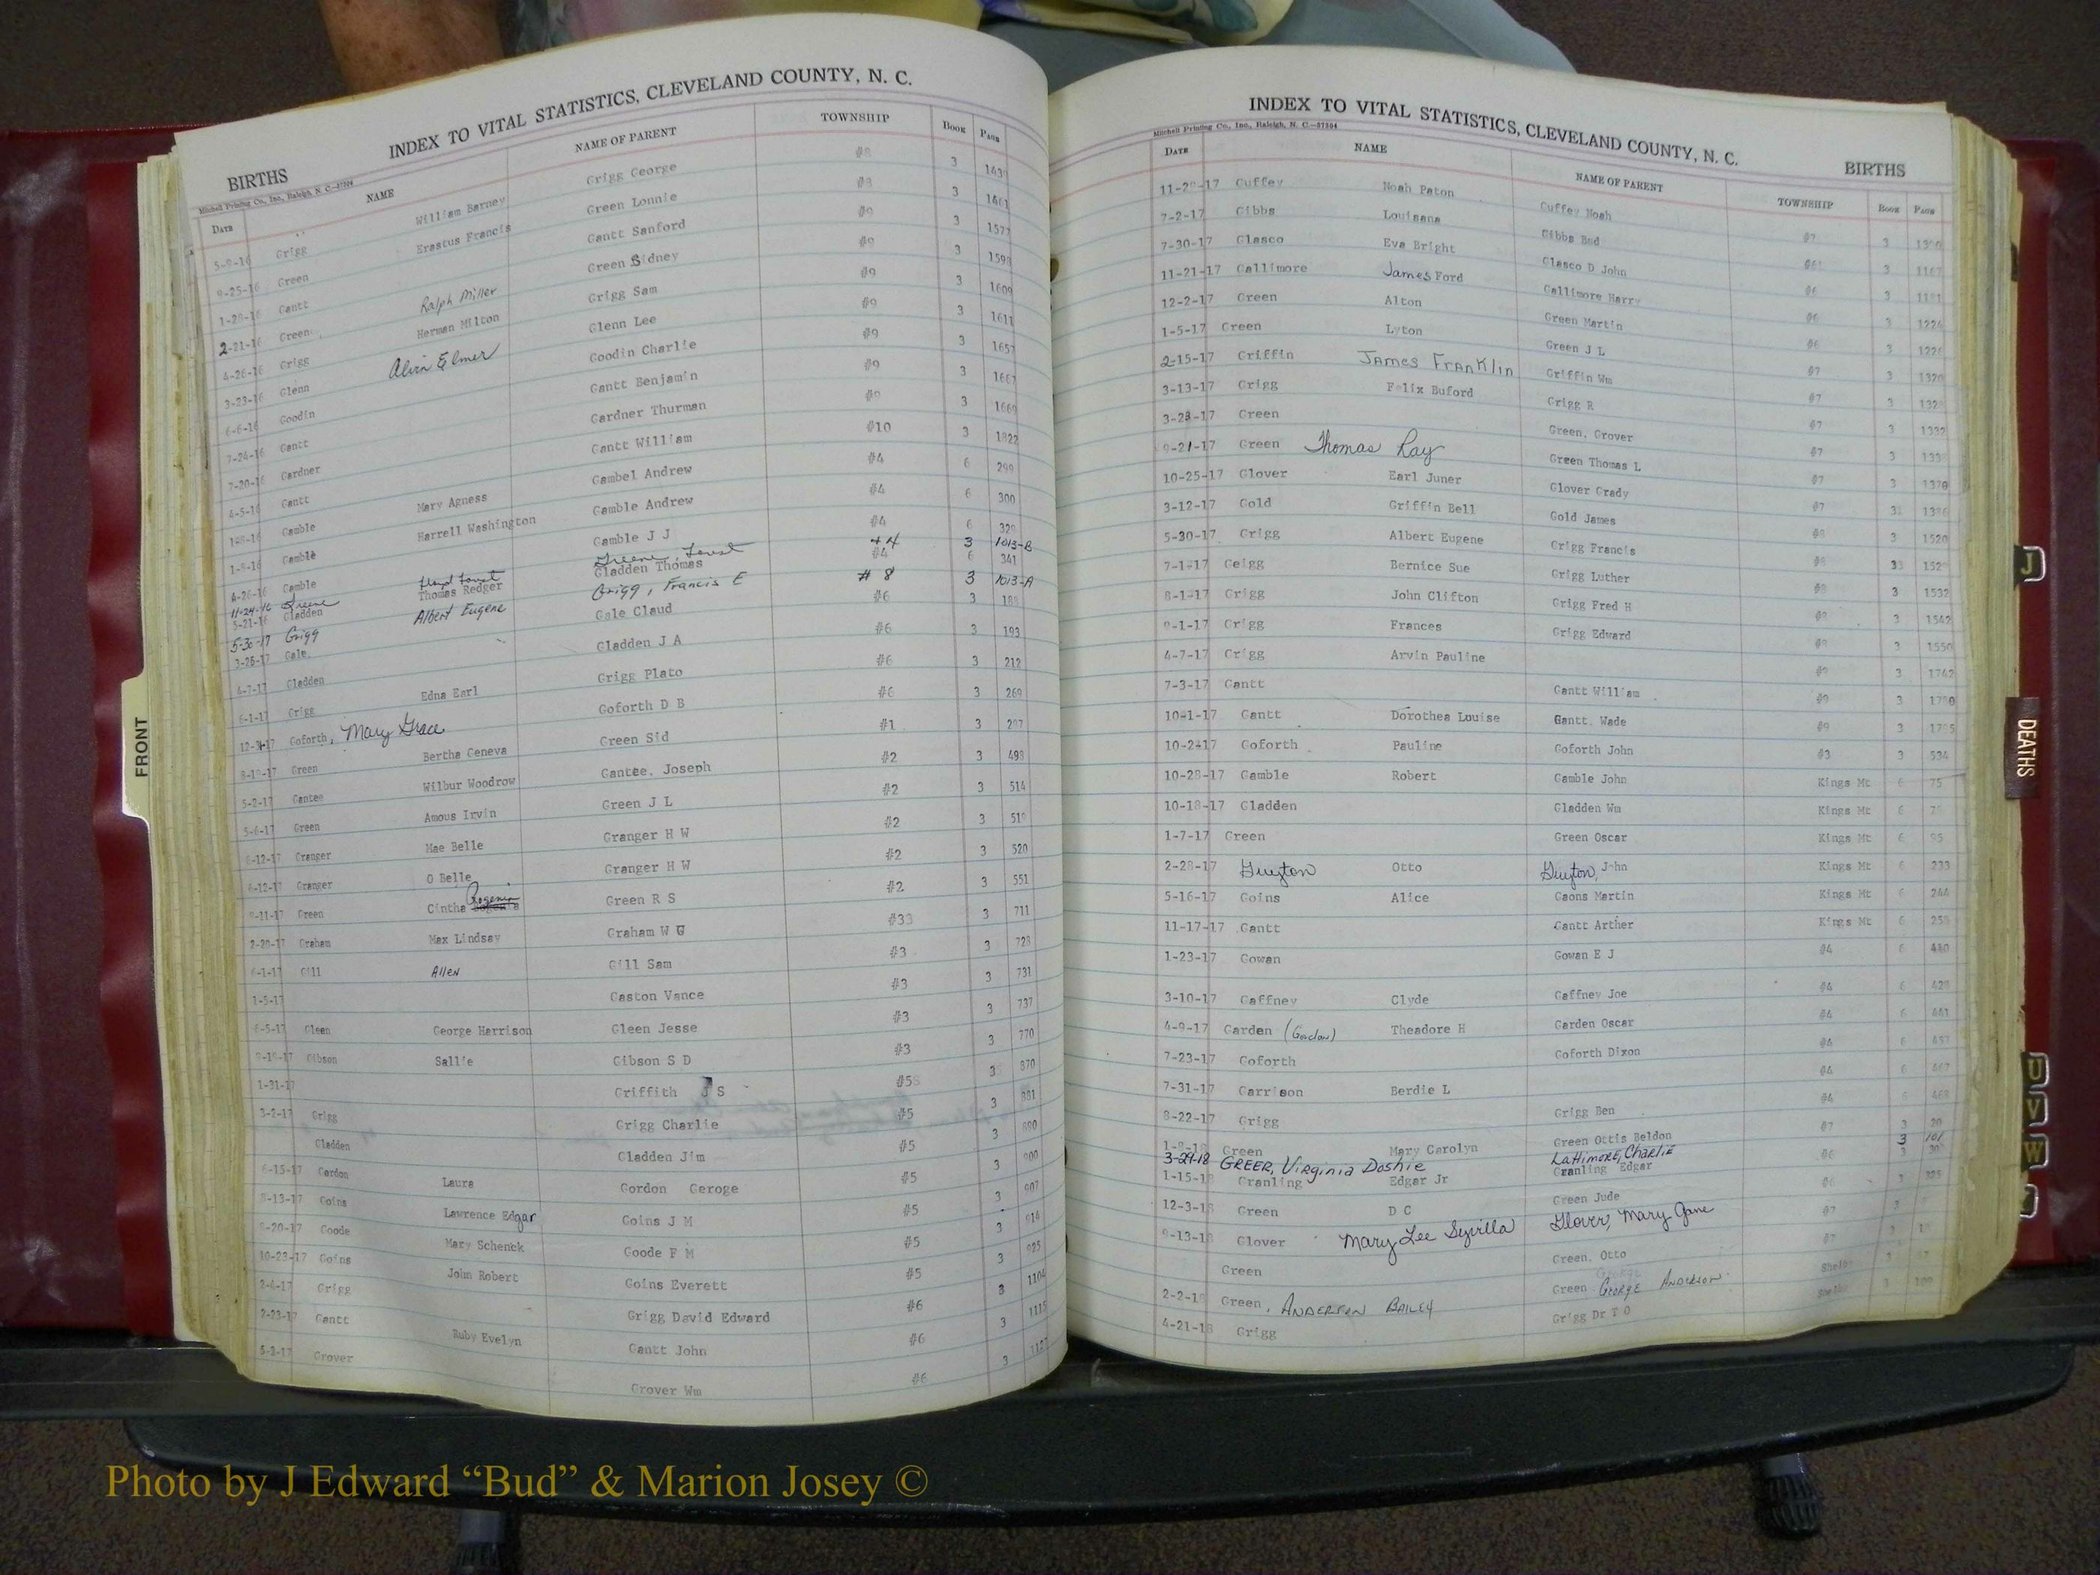 INDEX TO VITAL STATISTICS, CLEVELAND COUNTY, N. C.
BIRTHS
Mitchell Printing Co., Inc., Raleigh, N. C.
DATE NAME NAME OF PARENT TOWNSHIP BOOK PAGE
5-9-16 Grigg William Barney Grigg George #8 3
9-25-16 Green Erastus Francis Green Lonnie 3
Gantt Gantt Sanford #9 3
2-21-16 Green Ralph Miller Green Sidney #9 3
4-26-16 Grigg Herman Milton Grigg Sam #9 3 1609
3-23-16 Glenn Alvin Elmer Glenn Lee #9 3 1611
6-6-16 Goodin Goodin Charlie #9 3 1657
7-24-16 Gantt Gantt Benjamin #9 3 1667
7-20-16 Gardner Gardner Thurman #9 3 1669
4-5-16 Gantt Gantt William #10 3 1822
Gamble Mary Agness Gambel Andrew #4 6 299
1-8-16 Gamble Harrell Washington Gamble Andrew #4 6 300
Gamble Gamble J J #4 6
11-24-16 Greene Floyd Forest Greene, Forest #4 3 1013-B
5-21-16 Gladden Thomas Redger Gladden Thomas #4 6 341
5-30-17 Grigg Albert Eugene Grigg, Francis E # 8 3 1013-A
3-26-17 Gale Gale Claud #6 3
4-7-17 Gladden Gladden J A #6 3 193
6-1-17 Grigg Edna Earl Grigg Plato #6 3 212
Goforth, Mary Grace Goforth D B #6 3 269
Green Bertha Geneva Green Sid #1 3 297
5-2-17 Gantee Wilbur Woodrow Gantee, Joseph #2 3 498
5-6-17 Green Amous Irvin Green J L #2 3 514
Granger Mae Belle Granger H W #2 3
Granger O Belle Granger H W #2 3 520
9-11-17 Green Cintha Rogenia Green R S #2 3 551
2-20-17 Graham Max Lindsay Graham W G #33 3 711
6-1-17 Gill Allen Gill Sam #3 3 728
1-5-17 Gaston Vance #3 3 731
6-5-17 Gleen George Harrison Gleen Jesse #3 3 737
Gibson Sallie Gibson S D #3 3 770
1-31-17 Griffith J S #5 3 870
3-2-17 Grigg Grigg Charlie #5 3 881
Gladden Gladden Jim #5 3 890
6-15-17 Gordon Laura Gordon Geroge #5 3 900
8-13-17 Goins Lawrence Edgar Goins J M #5 3 907
8-20-17 Goode Mary Schenck Goode F M #5 3 914
10-23-17 Goins John Robert Goins Everett #5 3 925
2-4-17 Grigg Grigg David Edward #6 3 1104
2-23-17 Gantt Ruby Evelyn Gantt John #6 3 1115
5-2-17 Grover Grover Wm #6 3
FRONT
INDEX TO VITAL STATISTICS, CLEVELAND COUNTY, N. C.
BIRTHS
Mitchell Printing Co., Inc., Raleigh, N. C.—37504
DATE NAME NAME OF PARENT TOWNSHIP BOOK PAGE
Guffey Noah Paton Guffey Noah #7 3
7-2-17 Gibbs Louisana Gibbs Bud 3 1167
7-30-17 Glasco Eva Bright Glasco D John #6 3
11-21-17 Gallimore James Ford Gallimore Harry #6 3
12-2-17 Green Alton Green Martin #6 3 1226
1-5-17 Green Lyton Green J L #7 3 1320
2-15-17 Griffin James Franklin Griffin Wm #7 3
3-13-17 Grigg Felix Buford Grigg R #7 3 1332
3-23-17 Green Green, Grover #7 3
9-21-17 Green Thomas Ray Green Thomas L #7 3
10-25-17 Glover Earl Juner Glover Grady #7
3-12-17 Gold Griffin Bell Gold James #8 3 1520
5-30-17 Grigg Albert Eugene Grigg Francis #8
7-1-17 Geigg Bernice Sue Grigg Luther #8 3 1532
8-1-17 Grigg John Clifton Grigg Fred H 3 1542
9-1-17 Grigg Frances Grigg Edward #9 3 1550
4-7-17 Grigg Arvin Pauline #9 3 1742
7-3-17 Gantt Gantt William #9 3
10-1-17 Gantt Dorothea Louise Gantt, Wade #9 3
10-2-17 Goforth Pauline Goforth John #3 3 534
10-28-17 Gamble Robert Gamble John Kings Mt 6 75
10-18-17 Gladden Gladden Wm Kings Mt 6
1-7-17 Green Green Oscar Kings Mt 6 95
2-28-17 Guyton Otto Guyton, John Kings Mt 6 233
5-16-17 Goins Alice Gaons Martin Kings Mt 6 244
11-17-17 Gantt Gantt Arther Kings Mt 6
1-23-17 Gowan Gowan E J #4 6
3-10-17 Gaffney Clyde Gaffney Joe #4 6
4-9-17 Garden (Gordon) Theadore H Garden Oscar #4 6 441
7-23-17 Goforth Goforth Dixon #4 6 457
7-31-17 Garrison Berdie L #4 6
8-22-17 Grigg Grigg Ben #4 6
Green Mary Carolyn Green Ottis Beldon #7 3 20
3-29-18 GREER, Virginia Doshie Lattimore, Charlie 3 101
1-15-18 Granling Edgar Jr Granling Edgar #6 3 30
12-3-18 Green D C Green Jude #6 3
9-13-18 Glover Mary Lee Syvilla Glover, Mary Jane #7 3
Green Green, Otto #7
2-2-18 Green, ANDERSON BAILEY Green George Anderson Shelby 3
4-21-18 Grigg Grigg Dr T O Shelby 3 100
J
DEATHS
U
V
W
Photo by J Edward “Bud” & Marion Josey ©